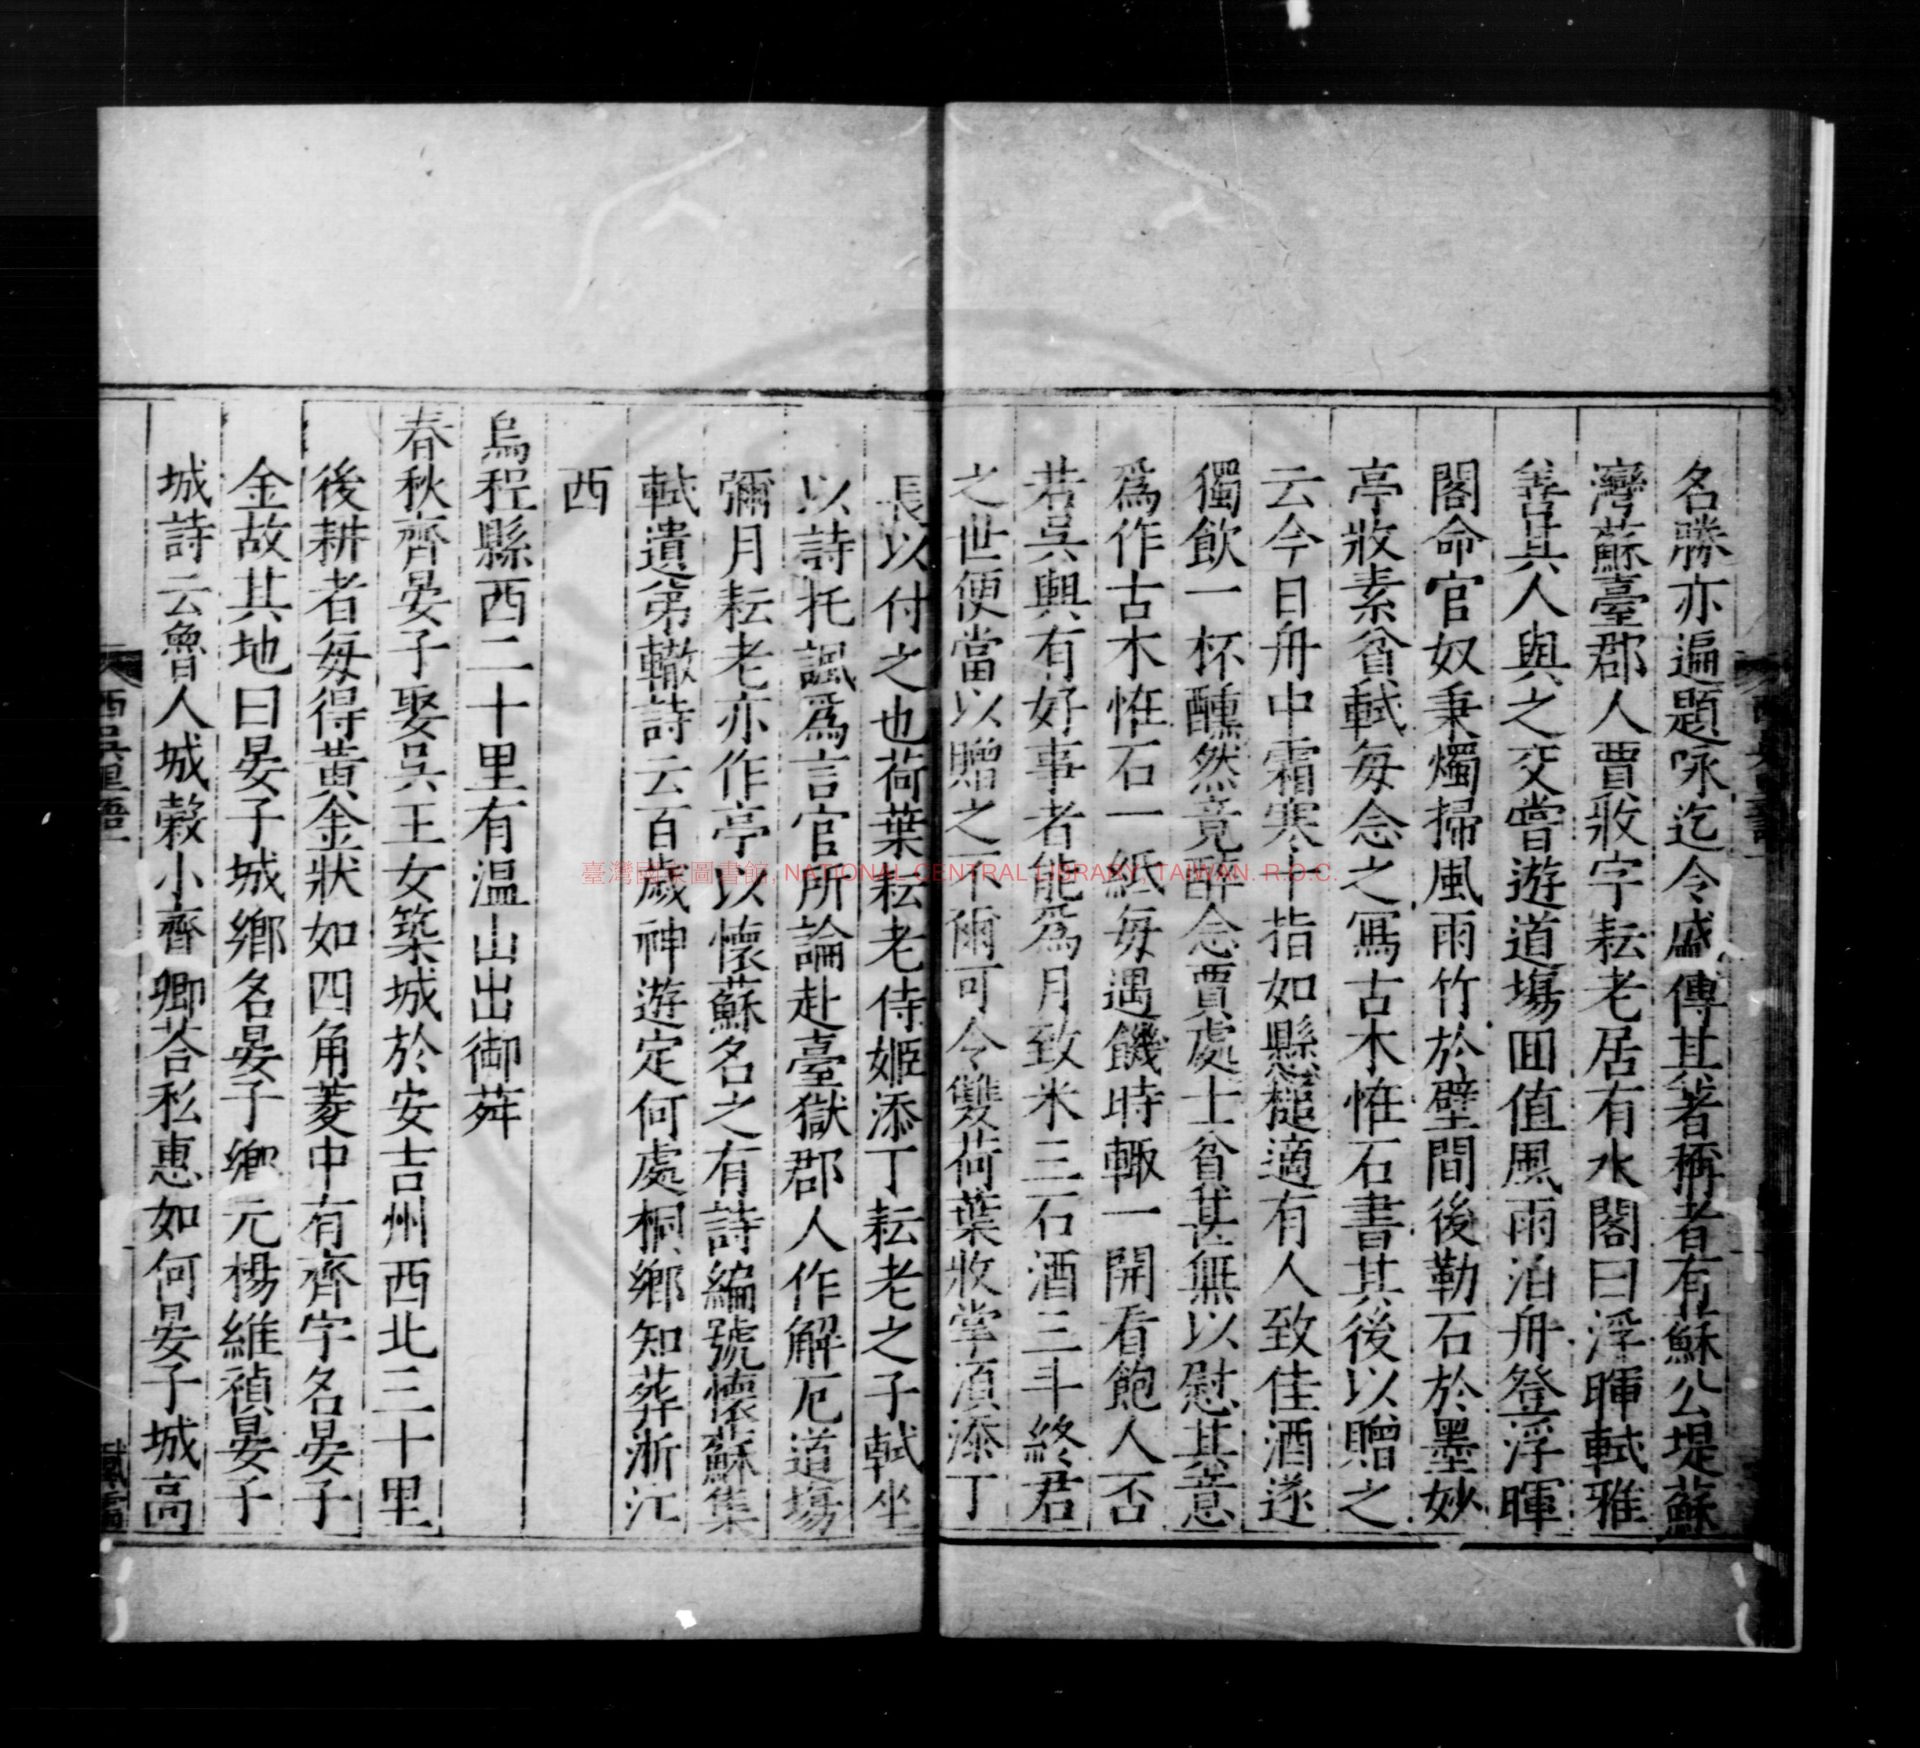 名勝亦遍題咏迄今盛傳其著稱者有蘇公堤蘇
灣蘇臺郡人賈收字耘老居有水閣曰浮暉軾雅
善其人與之交嘗遊道塲回值風雨泊舟登浮暉
閣命官奴秉燭掃風雨竹於壁間後勒石於墨妙
亭收素貧軾每念之寫古木恠石書其後以贈之
云今日舟中霜寒十指如懸槌適有人致佳酒遂
獨飲一杯醺然竟醉念賈處士貧甚無以慰其意
爲作古木恠石一紙每遇饑時輙一開看飽人否
若吳興有好事者能爲月致米三石酒三斗終君
之世便當以贈之不爾可令雙荷葉收掌須添丁
長以付之也荷葉耘老侍姬添丁耘老之子軾坐
以詩托諷爲言官所論赴臺獄郡人作解厄道塲
彌月耘老亦作亭以懷蘇名之有詩編號懷蘇集
軾遺弟轍詩云百歲神遊定何處桐鄉知葬浙江
西
烏程縣西二十里有温山出御荈
春秋齊晏子娶吳王女築城於安吉州西北三十里
後耕者每得黄金狀如四角菱中有齊字名晏子
金故其地曰晏子城鄉名晏子鄉元楊維禎晏子
城詩云魯人城穀小齊卿荅私惠如何晏子城高
西吳里語一
臺灣國家圖書館, NATIONAL CENTRAL LIBRARY, TAIWAN. R.O.C.